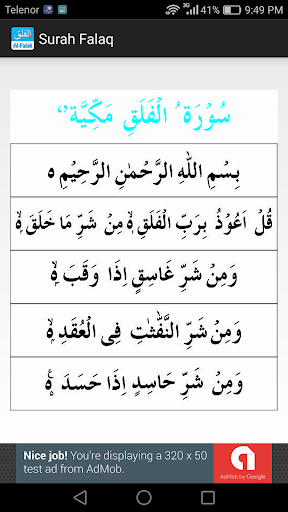 Telenor 4G 71% 9:49 PM
الفلق
Al-Falak
Surah Falaq
سُوْرَةُ الْفَلَقِ مَكِّيَّة
بِسْمِ اللّٰهِ الرَّحْمٰنِ الرَّحِيْمِ ه
قُلْ اَعُوْذُ بِرَبِّ الْفَلَقِ ۙ مِنْ شَرِّ مَا خَلَقَ ۙ
وَمِنْ شَرِّ غَاسِقٍ اِذَا وَقَبَ ۙ
وَمِنْ شَرِّ النَّفّٰثٰتِ فِى الْعُقَدِ ۙ
وَمِنْ شَرِّ حَاسِدٍ اِذَا حَسَدَ
Nice job! You're displaying a 320 x 50
test ad from AdMob.
AdMob by Google